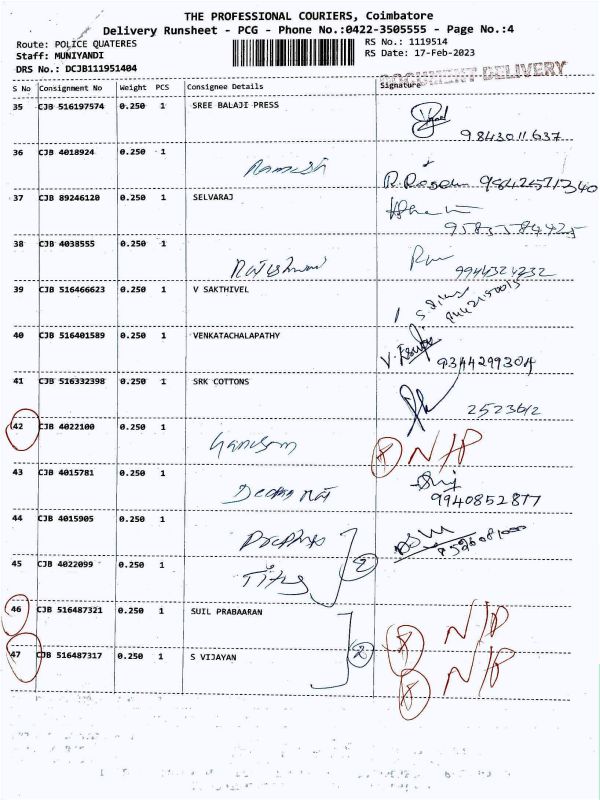 THE PROFESSIONAL COURIERS, Coimbatore
Delivery Runsheet - PCG - Phone No.:0422-3505555 - Page No.:4
Route: POLICE QUATERES RS No.: 1119514
Staff: MUNIYANDI RS Date: 17-Feb-2023
DRS No.: DCJB111951404
DOCUMENT DELIVERY
S No Consignment No Weight PCS Consignee Details Signature
35 CJB 516197574 0.250 1 SREE BALAJI PRESS
9843011637
36 CJB 4018924 0.250 1
Ramesh
9842571340
37 CJB 89246120 0.250 1 SELVARAJ
38 CJB 4038555 0.250 1
39 CJB 516466623 0.250 1 V SAKTHIVEL
40 CJB 516401589 0.250 1 VENKATACHALAPATHY
9344299304
41 CJB 516332398 0.250 1 SRK COTTONS
2523612
42 CJB 4022100 0.250 1
N/P
43 CJB 4015781 0.250 1
9940852877
44 CJB 4015905 0.250 1
45 CJB 4022099 0.250 1
2
46 CJB 516487321 0.250 1 SUIL PRABAARAN
N/P
47 CJB 516487317 0.250 1 S VIJAYAN
2
N/P